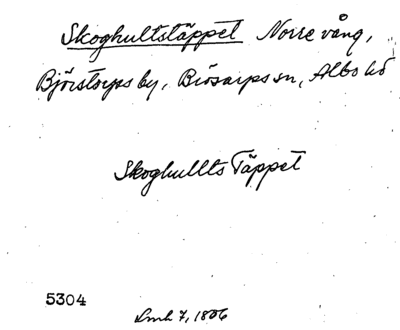 Skoghultstäppet Norre vång,
Björstorps by, Brösarps sn, Albo hd
Skoghullts Täppet
5304
Lmh 7, 1806